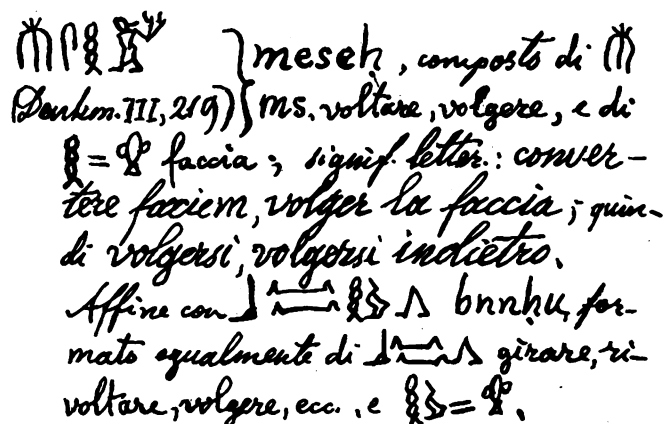 𓄟𓋴𓎛 } meseḥ, composto di 𓄟
(Denkm. III, 219) } ms. voltare, volgere, e di
𓎛 = 𓁷 faccia; signif. letter.: conver-
tere faciem, volger la faccia; quin-
di volgersi, volgersi indietro.
Affine con 𓃀𓈖𓈖𓎛𓂻 bnnḥu, for-
mato egualmente di 𓃀𓈖𓈖𓂻 girare, ri-
voltare, volgere, ecc., e 𓎛 = 𓁷.